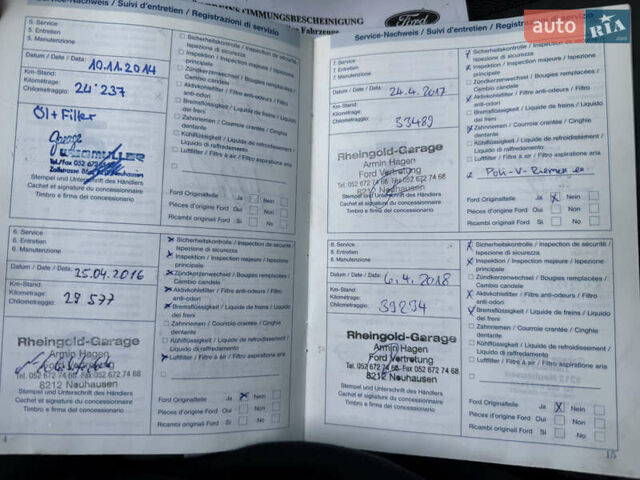 ÜBEREINSTIMMUNGSBESCHEINIGUNG
Ford
auto RIA.com
Service-Nachweis / Suivi d'entretien / Registrazioni di servizio
5. Service
5. Entretien
5. Manutenzione
Datum / Date / Data: 10.11.2014
Km-Stand:
Kilométrage:
Chilometraggio: 24'237
Öl + Filter
Tel./Fax 052 672
Stempel und Unterschrift des Händlers
Cachet et signature du concessionnaire
Timbro e firma del concessionario
Sicherheitskontrolle / Inspection de sécurité /
Ispezione di sicurezza
Inspektion / Inspection majeure / Ispezione
principale
Zündkerzenwechsel / Bougies remplacées /
Cambio candele
Aktivkohlefilter / Filtre anti-odeurs / Filtro
anti-odori
Bremsflüssigkeit / Liquide de freins / Liquido
dei freni
Zahnriemen / Courroie crantée / Cinghie
dentante
Kühlflüssigkeit / Liquide de refroidissement /
Liquido di raffreddamento
Luftfilter / Filtre à air / Filtro aspirazione aria
Ford Originalteile Ja Nein
Pièces d'origine Ford Oui Non
Ricambi originali Ford Si No
6. Service
6. Entretien
6. Manutenzione
Datum / Date / Data: 25.04.2016
Km-Stand:
Kilométrage:
Chilometraggio: 29 577
Rheingold-Garage
Armin Hagen
Tel. 052 672 74 66 Fax 052 672 74 68
8212 Neuhausen
Stempel und Unterschrift des Händlers
Cachet et signature du concessionnaire
Timbro e firma del concessionario
Sicherheitskontrolle / Inspection de sécurité /
Ispezione di sicurezza
Inspektion / Inspection majeure / Ispezione
principale
Zündkerzenwechsel / Bougies remplacées /
Cambio candele
Aktivkohlefilter / Filtre anti-odeurs / Filtro
anti-odori
Bremsflüssigkeit / Liquide de freins / Liquido
dei freni
Zahnriemen / Courroie crantée / Cinghie
dentante
Kühlflüssigkeit / Liquide de refroidissement /
Liquido di raffreddamento
Luftfilter / Filtre à air / Filtro aspirazione aria
Ford Originalteile Ja Nein
Pièces d'origine Ford Oui Non
Ricambi originali Ford Si No
Service-Nachweis / Suivi d'entretien / Registrazioni di servizio
7. Service
7. Entretien
7. Manutenzione
Datum / Date / Data: 24.4.2017
Km-Stand:
Kilométrage:
Chilometraggio: 33489
Rheingold-Garage
Armin Hagen
Ford Vertretung
Tel. 052 672 74 66 Fax 052 672 74 68
8212 Neuhausen
Stempel und Unterschrift des Händlers
Cachet et signature du concessionnaire
Timbro e firma del concessionario
Sicherheitskontrolle / Inspection de sécurité /
Ispezione di sicurezza
Inspektion / Inspection majeure / Ispezione
principale
Zündkerzenwechsel / Bougies remplacées /
Cambio candele
Aktivkohlefilter / Filtre anti-odeurs / Filtro
anti-odori
Bremsflüssigkeit / Liquide de freins / Liquido
dei freni
Zahnriemen / Courroie crantée / Cinghie
dentante
Kühlflüssigkeit / Liquide de refroidissement /
Liquido di raffreddamento
Luftfilter / Filtre à air / Filtro aspirazione aria
Poli-V-Riemen
Ford Originalteile Ja Nein
Pièces d'origine Ford Oui Non
Ricambi originali Ford Si No
8. Service
8. Entretien
8. Manutenzione
Datum / Date / Data: 6.4.2018
Km-Stand:
Kilométrage:
Chilometraggio: 39294
Rheingold-Garage
Armin Hagen
Ford Vertretung
Tel. 052 672 74 66 Fax 052 672 74 68
8212 Neuhausen
Stempel und Unterschrift des Händlers
Cachet et signature du concessionnaire
Timbro e firma del concessionario
Sicherheitskontrolle / Inspection de sécurité /
Ispezione di sicurezza
Inspektion / Inspection majeure / Ispezione
principale
Zündkerzenwechsel / Bougies remplacées /
Cambio candele
Aktivkohlefilter / Filtre anti-odeurs / Filtro
anti-odori
Bremsflüssigkeit / Liquide de freins / Liquido
dei freni
Zahnriemen / Courroie crantée / Cinghie
dentante
Kühlflüssigkeit / Liquide de refroidissement /
Liquido di raffreddamento
Luftfilter / Filtre à air / Filtro aspirazione aria
Ford Originalteile Ja Nein
Pièces d'origine Ford Oui Non
Ricambi originali Ford Si No
15